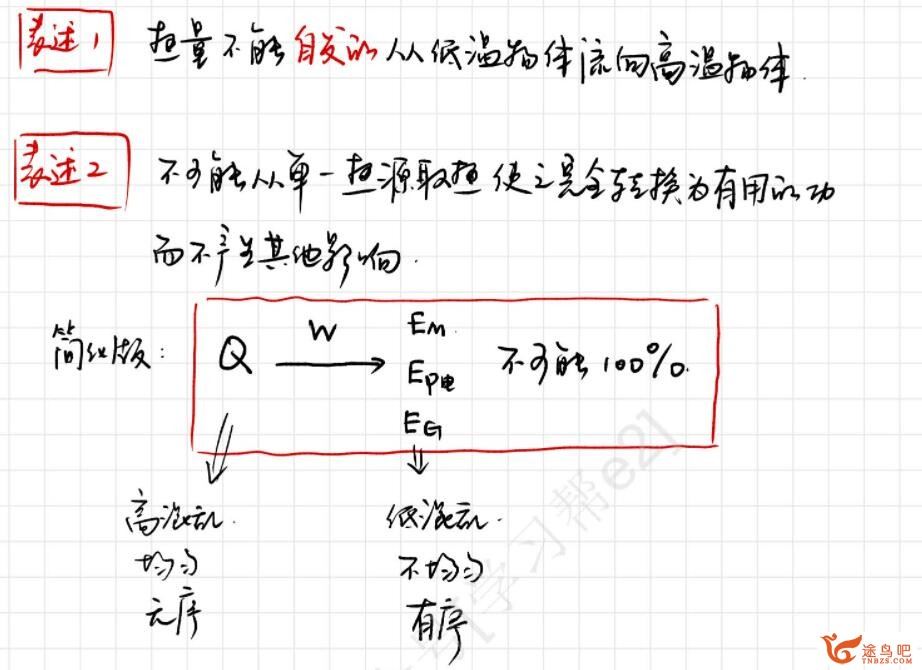 表述1 热量不能自发的从低温物体流向高温物体.
表述2 不可能从单一热源取热使之完全转换为有用的功
而不产生其他影响.
简化版: Q W EM. 不可能100%.
Ep电
EG
高混乱. 低混乱.
均匀 不均匀
无序 有序
学习帮e2]
途鸟吧
TNBZS.COM